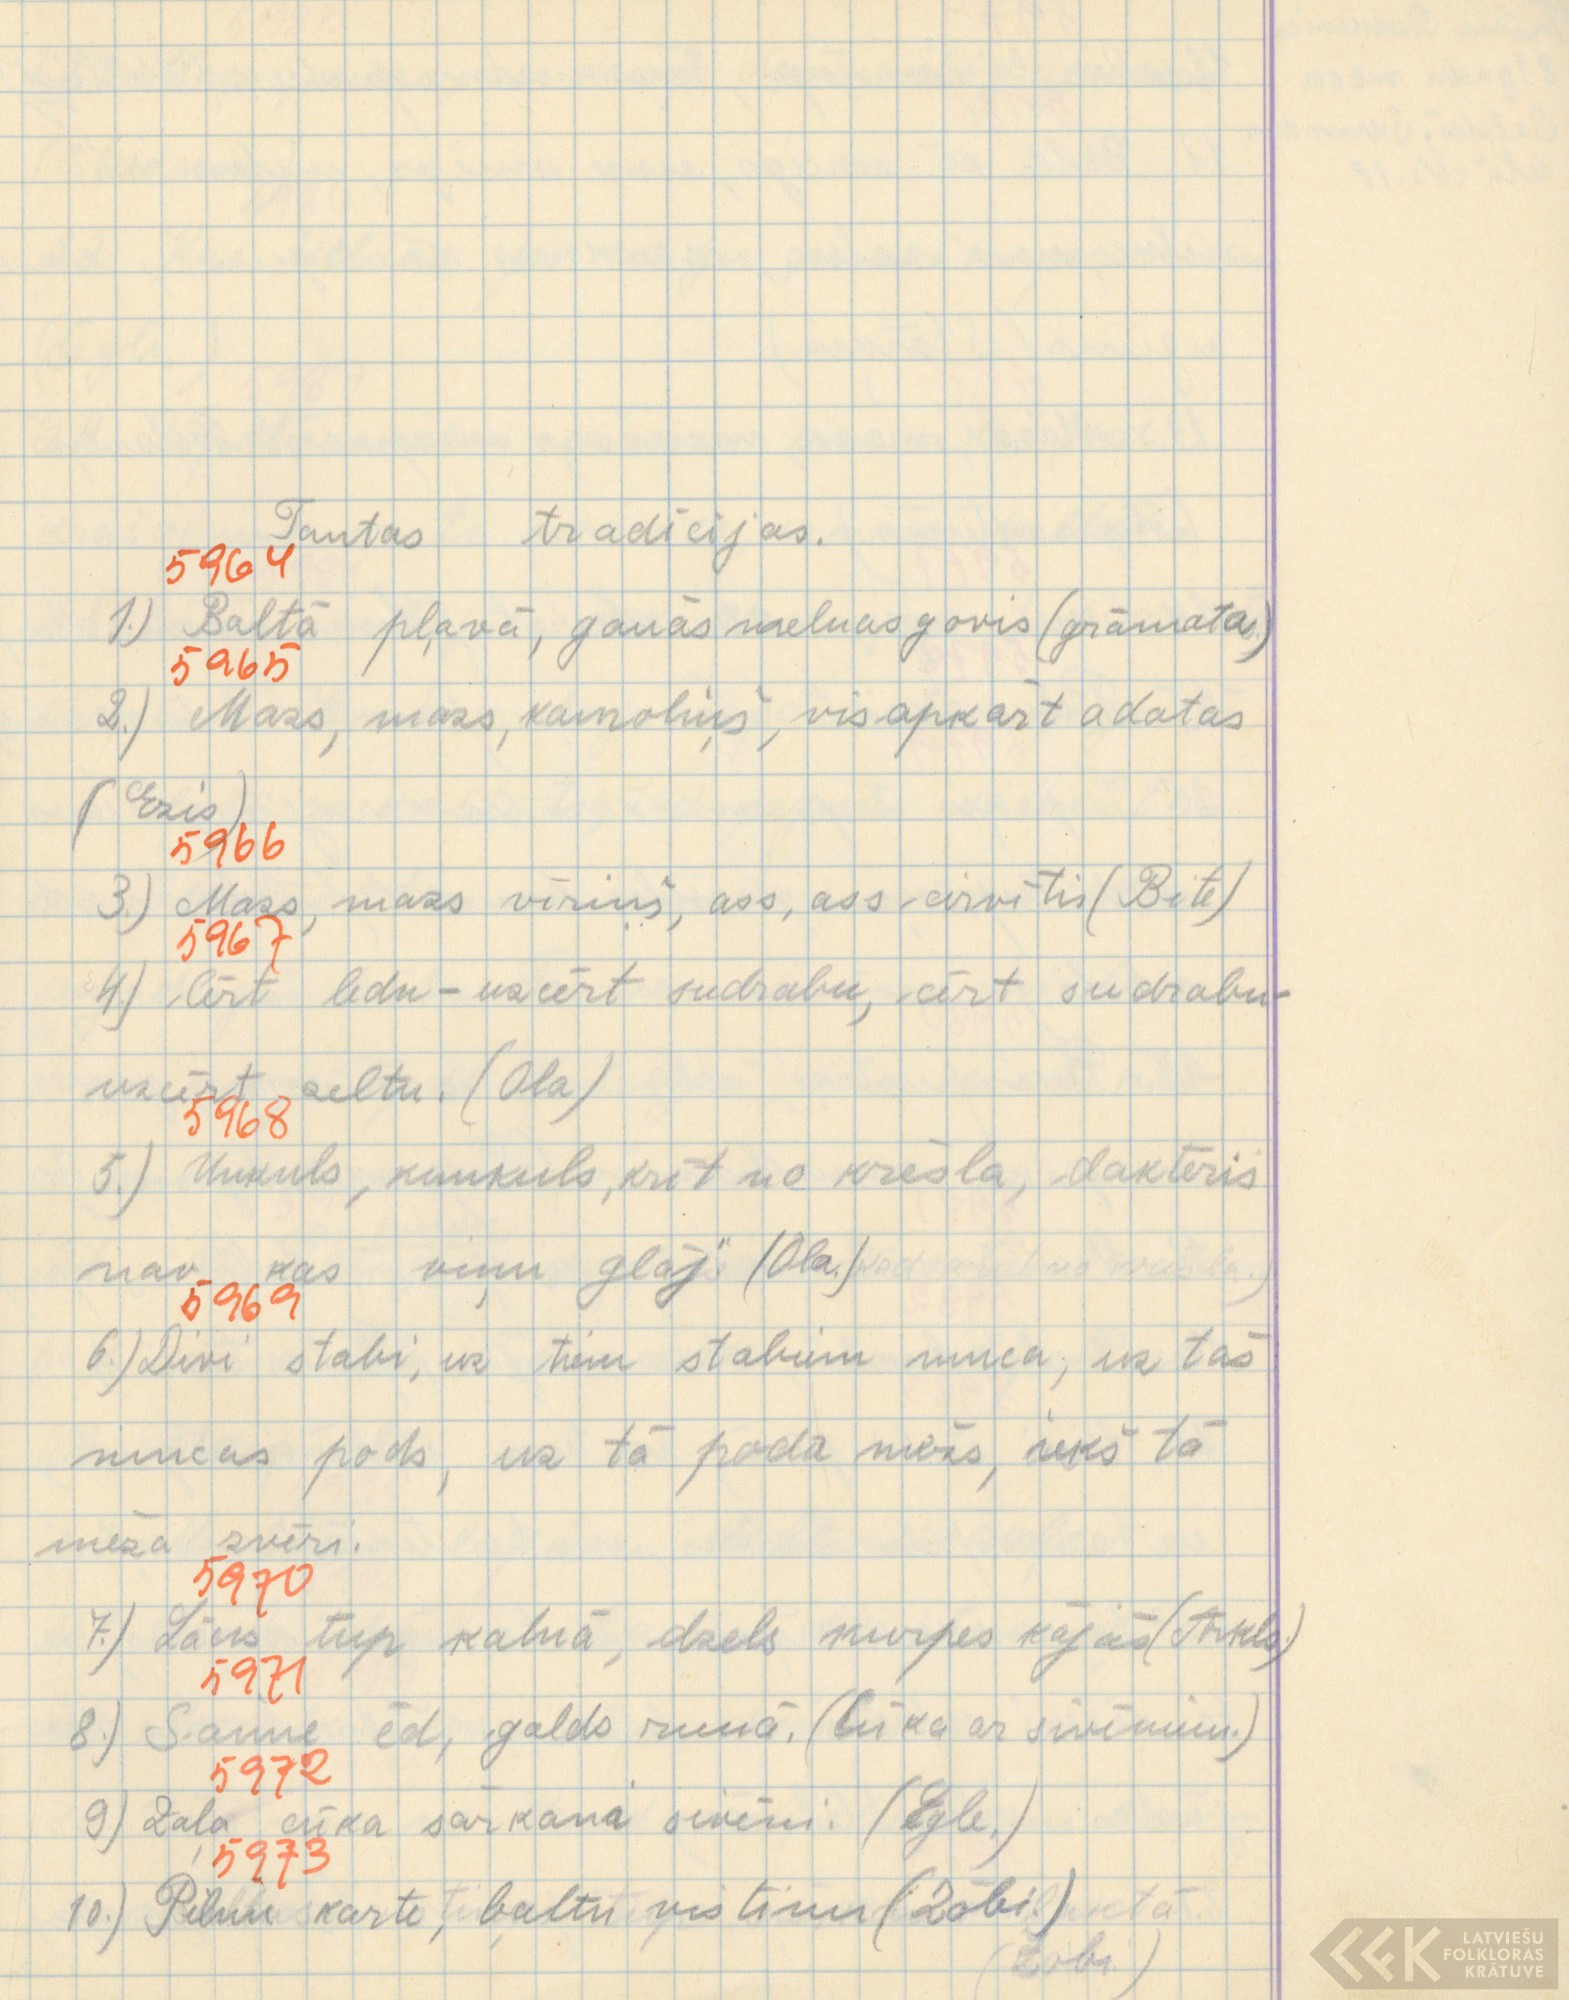 Tautas tradīcijas.
5964
1.) Baltā pļavā, ganās melnas govis (grāmata.)
5965
2.) Mazs, mazs, kamoliņš, visapkārt adatas
(Ezis)
5966
3.) Mazs, mazs vīriņš, ass, ass cirvītis (Bite)
5967
4.) Cērt ledu - uzcērt sudrabu, cērt sudrabu -
uzcērt zeltu. (Ola)
5968
5.) Unkuls, kunkuls, krīt no krēsla, dakteris
nav kas viņu glāj (Ola.)
5969
6.) Divi stabi, uz tiem stabiem muca, uz tās
mucas pods, uz tā poda mežs, iekš tā
meža zvēri.
5970
7.) Lācis tup kalnā, dzels kurpes kājās (Arkls.)
5971
8.) Saime ēd, galds runā. (Cūka ar sivēniem.)
5972
9) Zaļa cūka sārkani sivēni. (Egle.)
5973
10.) Pilnu karte, baltu vistiņu (Zobi.)
(Zobi.)
LATVIEŠU
FOLKLORAS
KRĀTUVE